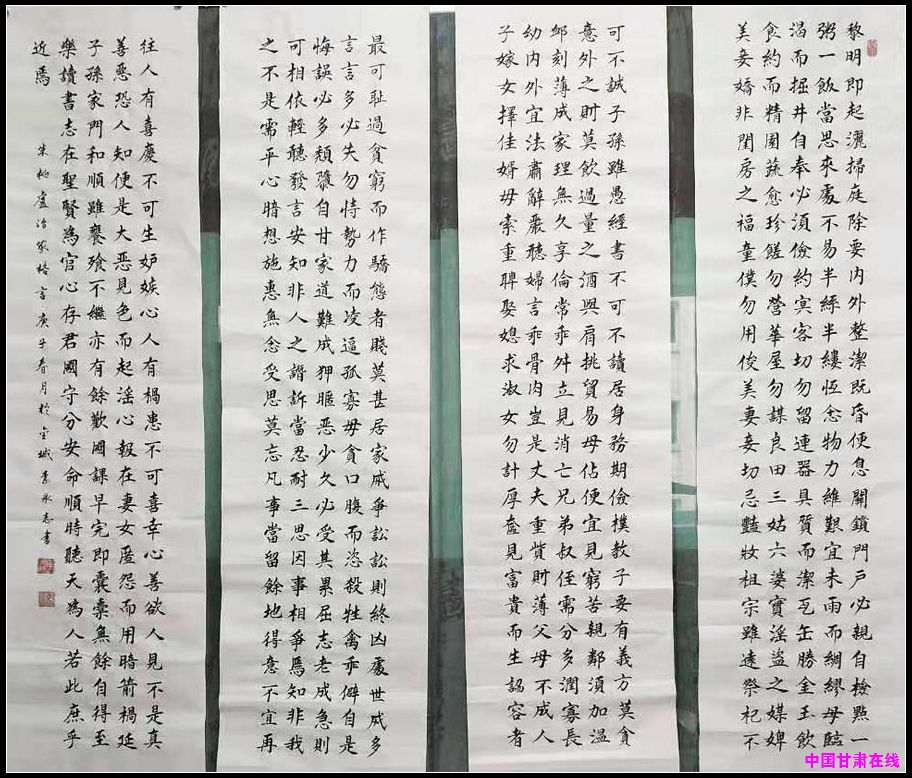 黎明即起灑掃庭除要內外整潔既昏便息關鎖門戶必親自檢點一
粥一飯當思來處不易半絲半縷恆念物力維艱宜未雨而綢繆毋臨
渴而掘井自奉必須儉約宴客切勿留連器具質而潔瓦缶勝金玉飲
食約而精園蔬愈珍饈勿營華屋勿謀良田三姑六婆實淫盜之媒婢
美妾嬌非閨房之福童僕勿用俊美妻妾切忌豔妝祖宗雖遠祭祀不
可不誠子孫雖愚經書不可不讀居身務期儉樸教子要有義方莫貪
意外之財莫飲過量之酒與肩挑貿易毋佔便宜見窮苦親鄰須加溫
卹刻薄成家理無久享倫常乖舛立見消亡兄弟叔侄需分多潤寡長
幼內外宜法肅辭嚴聽婦言乖骨肉豈是丈夫重貲財薄父母不成人
子嫁女擇佳婿毋索重聘娶媳求淑女勿計厚奩見富貴而生諂容者
最可恥過貧窮而作驕態者賤莫甚居家戒爭訟訟則終凶處世戒多
言言多必失勿恃勢力而凌逼孤寡毋貪口腹而恣殺牲禽乖僻自是
悔誤必多頹隳自甘家道難成狎暱惡少久必受其累屈志老成急則
可相依輕聽發言安知非人之譖訴當忍耐三思因事相爭焉知非我
之不是需平心暗想施惠無念受恩莫忘凡事當留餘地得意不宜再
往人有喜慶不可生妒嫉心人有禍患不可喜幸心善欲人見不是真
善惡恐人知便是大惡見色而起淫心報在妻女匿怨而用暗箭禍延
子孫家門和順雖饔飧不繼亦有餘歡國課早完即囊橐無餘自得至
樂讀書志在聖賢為官心存君國守分安命順時聽天為人若此庶乎
近焉 朱柏廬治家格言庚子春月於金城李永志書
中国甘肃在线